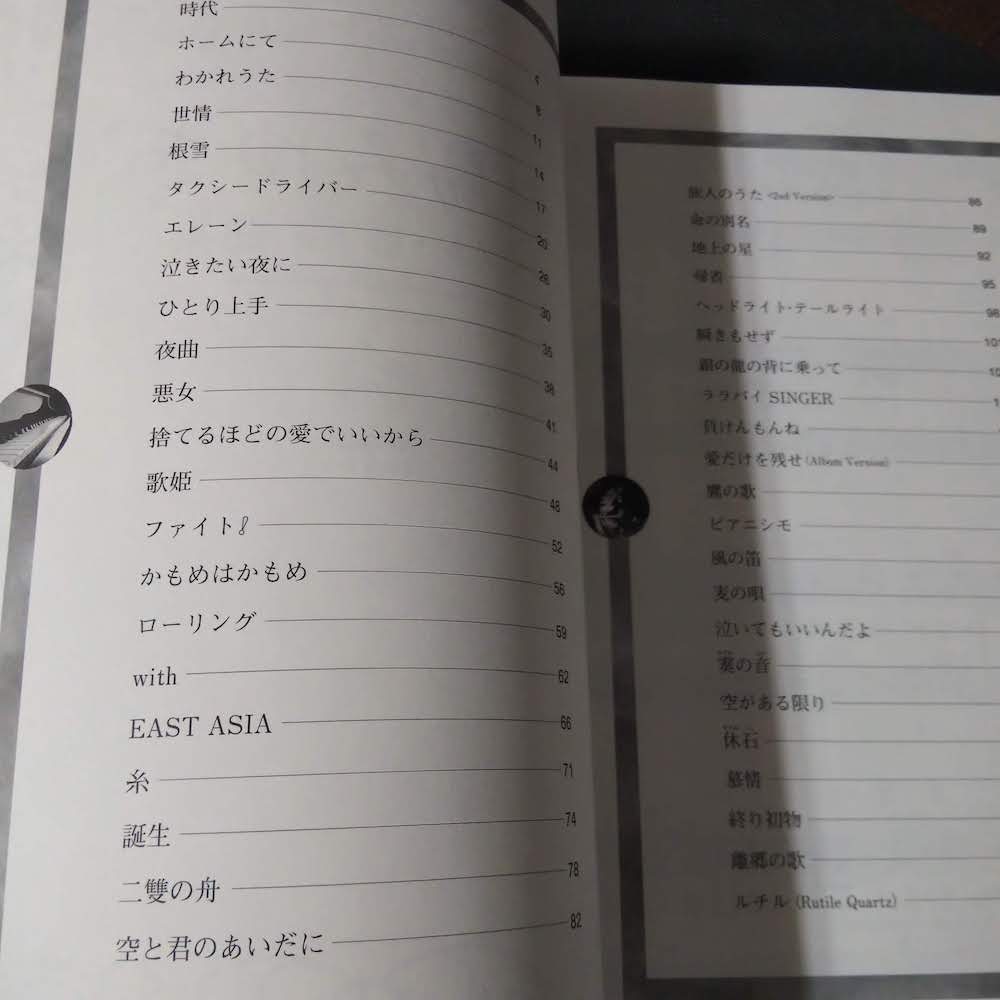 時代 4
ホームにて 8
わかれうた 11
世情 14
根雪 17
タクシードライバー 20
エレーン 26
泣きたい夜に 30
ひとり上手 35
夜曲 38
悪女 41
捨てるほどの愛でいいから 44
歌姫 48
ファイト! 52
かもめはかもめ 56
ローリング 59
with 62
EAST ASIA 66
糸 71
誕生 74
二雙の舟 78
空と君のあいだに 82
旅人のうた <2nd Version> 86
命の別名 89
地上の星 92
帰省 95
ヘッドライト・テールライト 98
瞬きもせず 101
銀の龍の背に乗って 10
ララバイ SINGER 1
負けんもんね
愛だけを残せ (Album Version)
鷹の歌
ピアニシモ
風の笛
麦の唄
泣いてもいいんだよ
霙の音
空がある限り
休石
慕情
終り初物
離郷の歌
ルチル (Rutile Quartz)